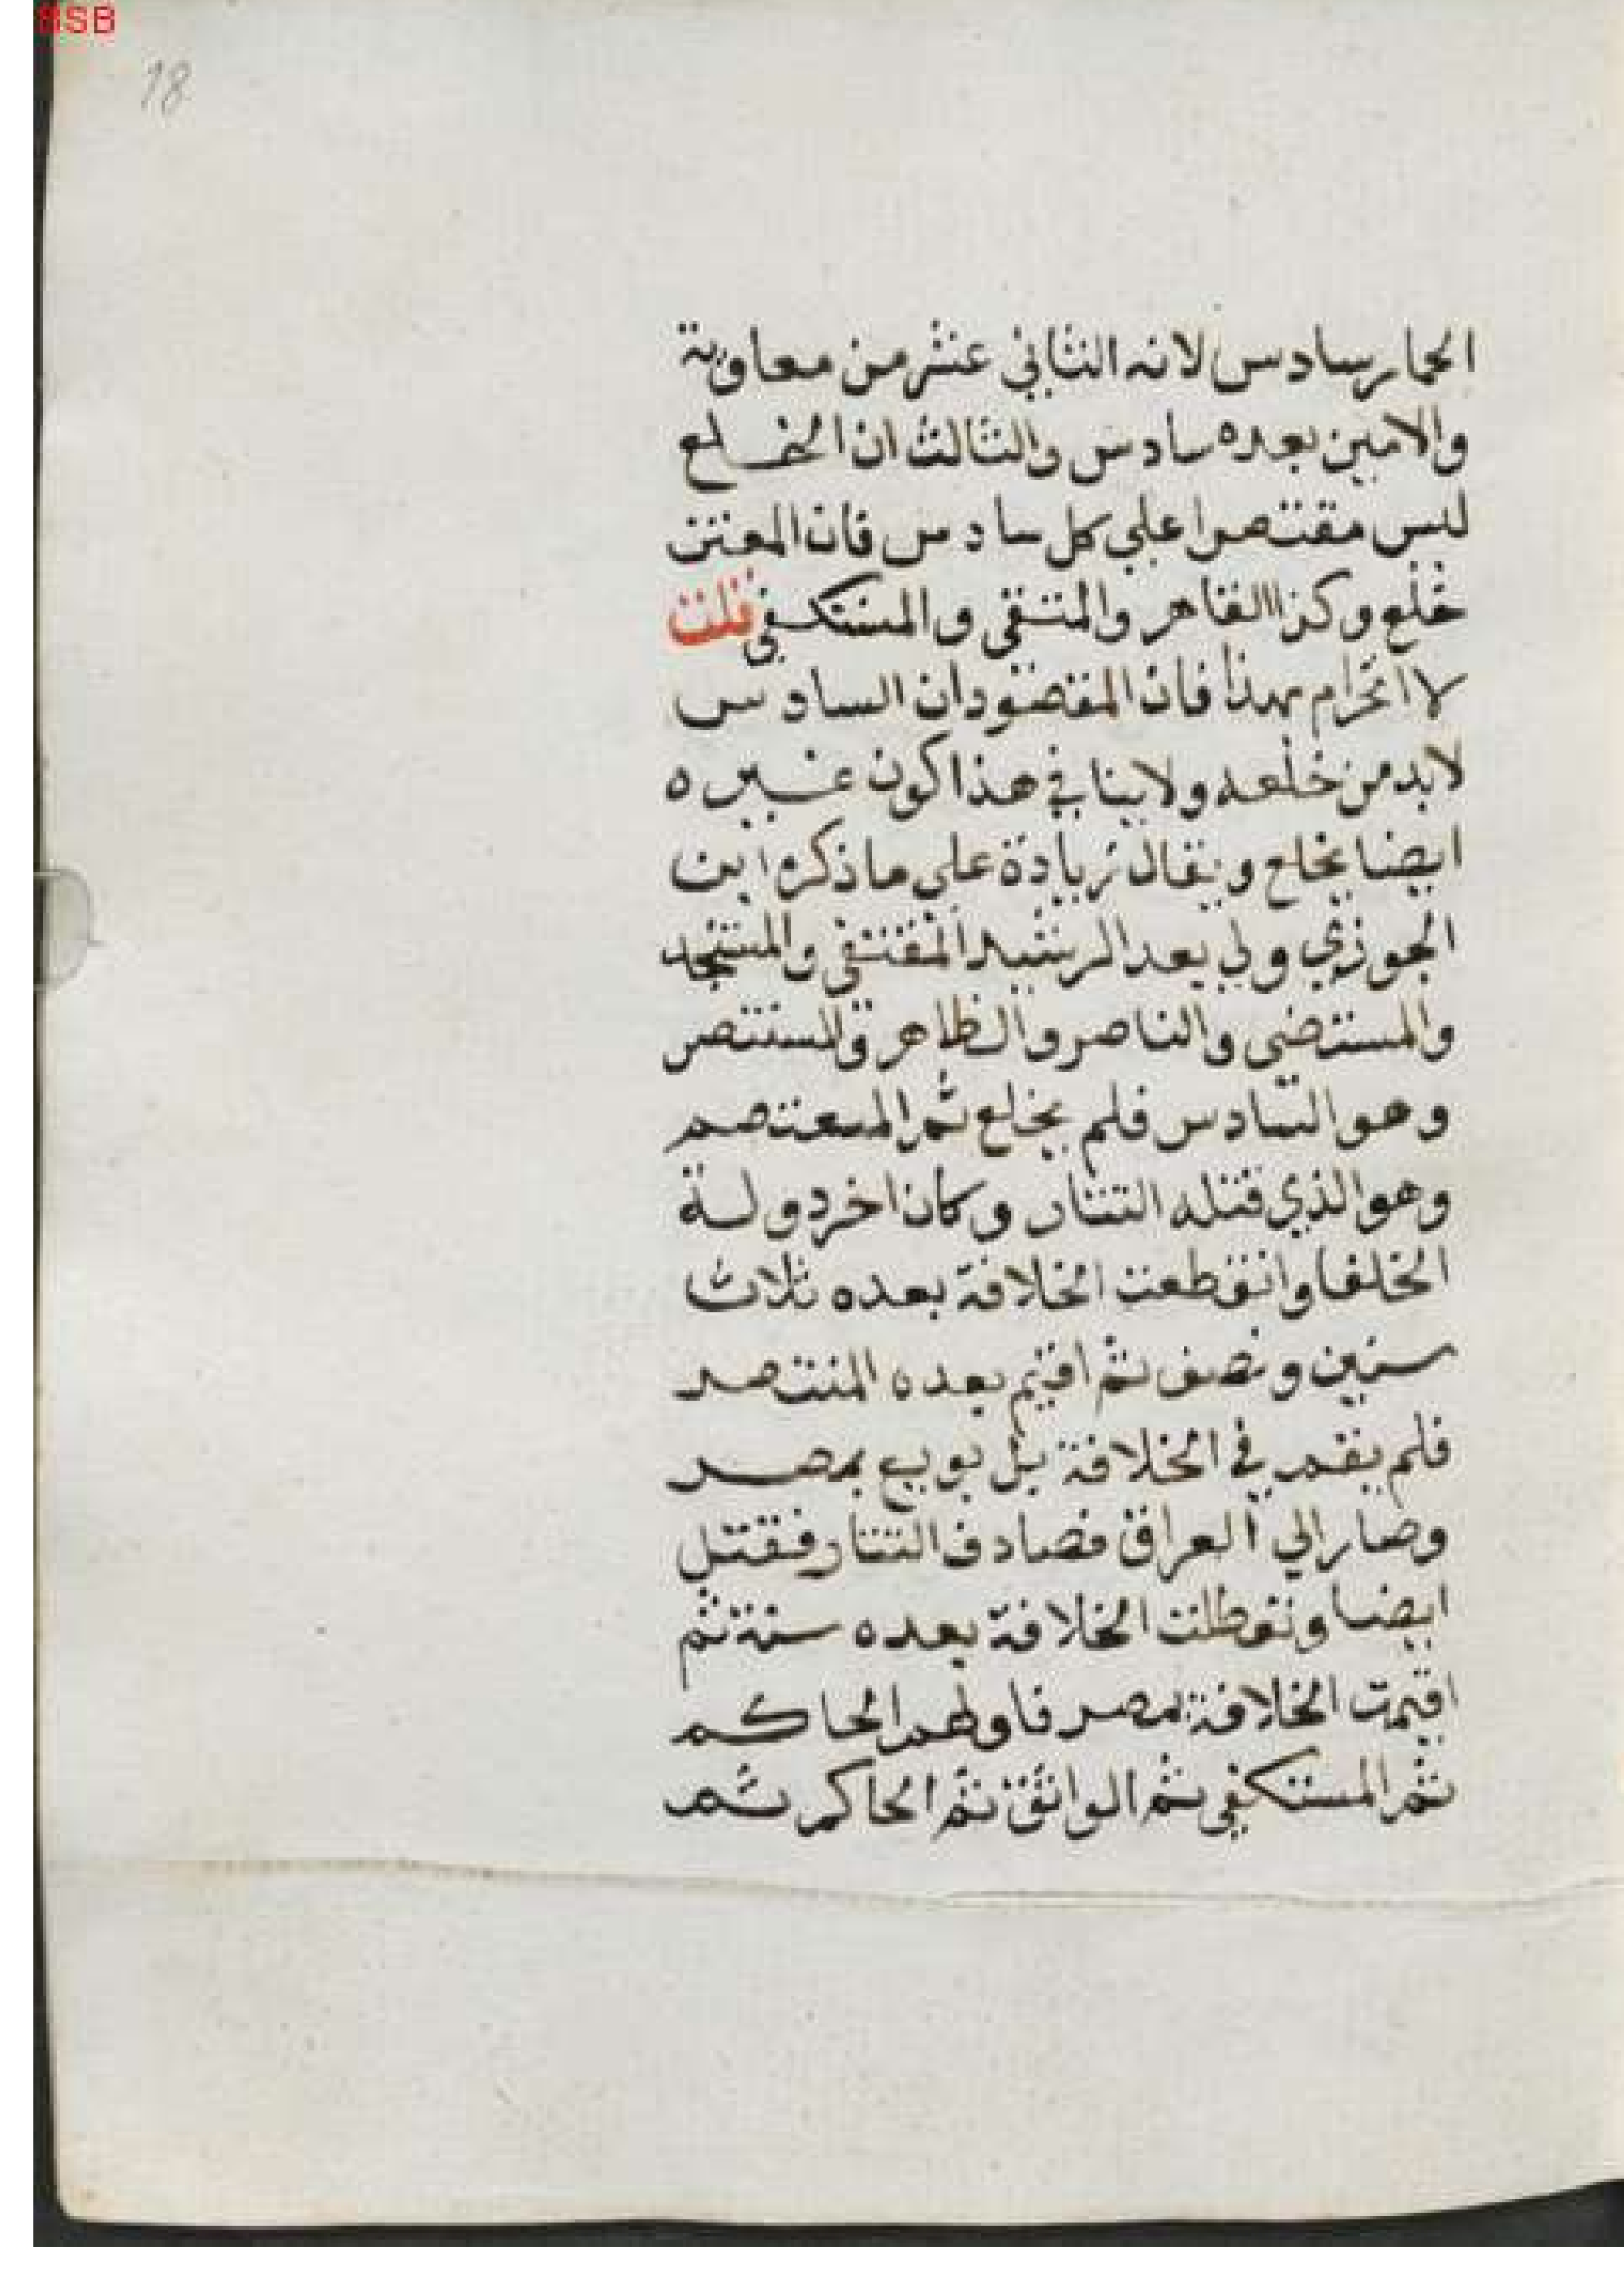 BSB
18
الحمار سادس لانه الثاني عشر من معاوية
والامين بعده سادس والثالث ان الخلع
ليس مقتصرا علي كل سادس فان المعتز
خلع وكذا القاهر والمتقي والمستكفي قلت
لا انخرام بهذا فان المقصود ان السادس
لابد من خلعه ولا ينافي هذا كون غيره
ايضا يخلع ويقال زيادة علي ما ذكره ابن
الجوزي ولي بعد الرشيد المقتفي والمستنجد
والمستضي والناصر والظاهر والمستنصر
وهو السادس فلم يخلع ثم المستعصم
وهو الذي قتله التتار وكان اخر دولة
الخلفا وانقطعت الخلافة بعده ثلاث
سنين ونصف ثم اقيم بعده المنتصر
فلم يقم في الخلافة بل بويع بمصر
وصار الي العراق فصادف التتار فقتل
ايضا وتعطلت الخلافة بعده سنة ثم
اقيمت الخلافة بمصر فاولهم الحاكم
ثم المستكفي ثم الواثق ثم الحاكم ثم